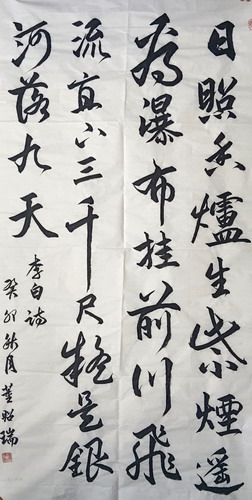 日照香爐生紫煙遥
看瀑布挂前川飛
流直下三千尺疑是銀
河落九天
李白詩
癸卯秋月董瑞